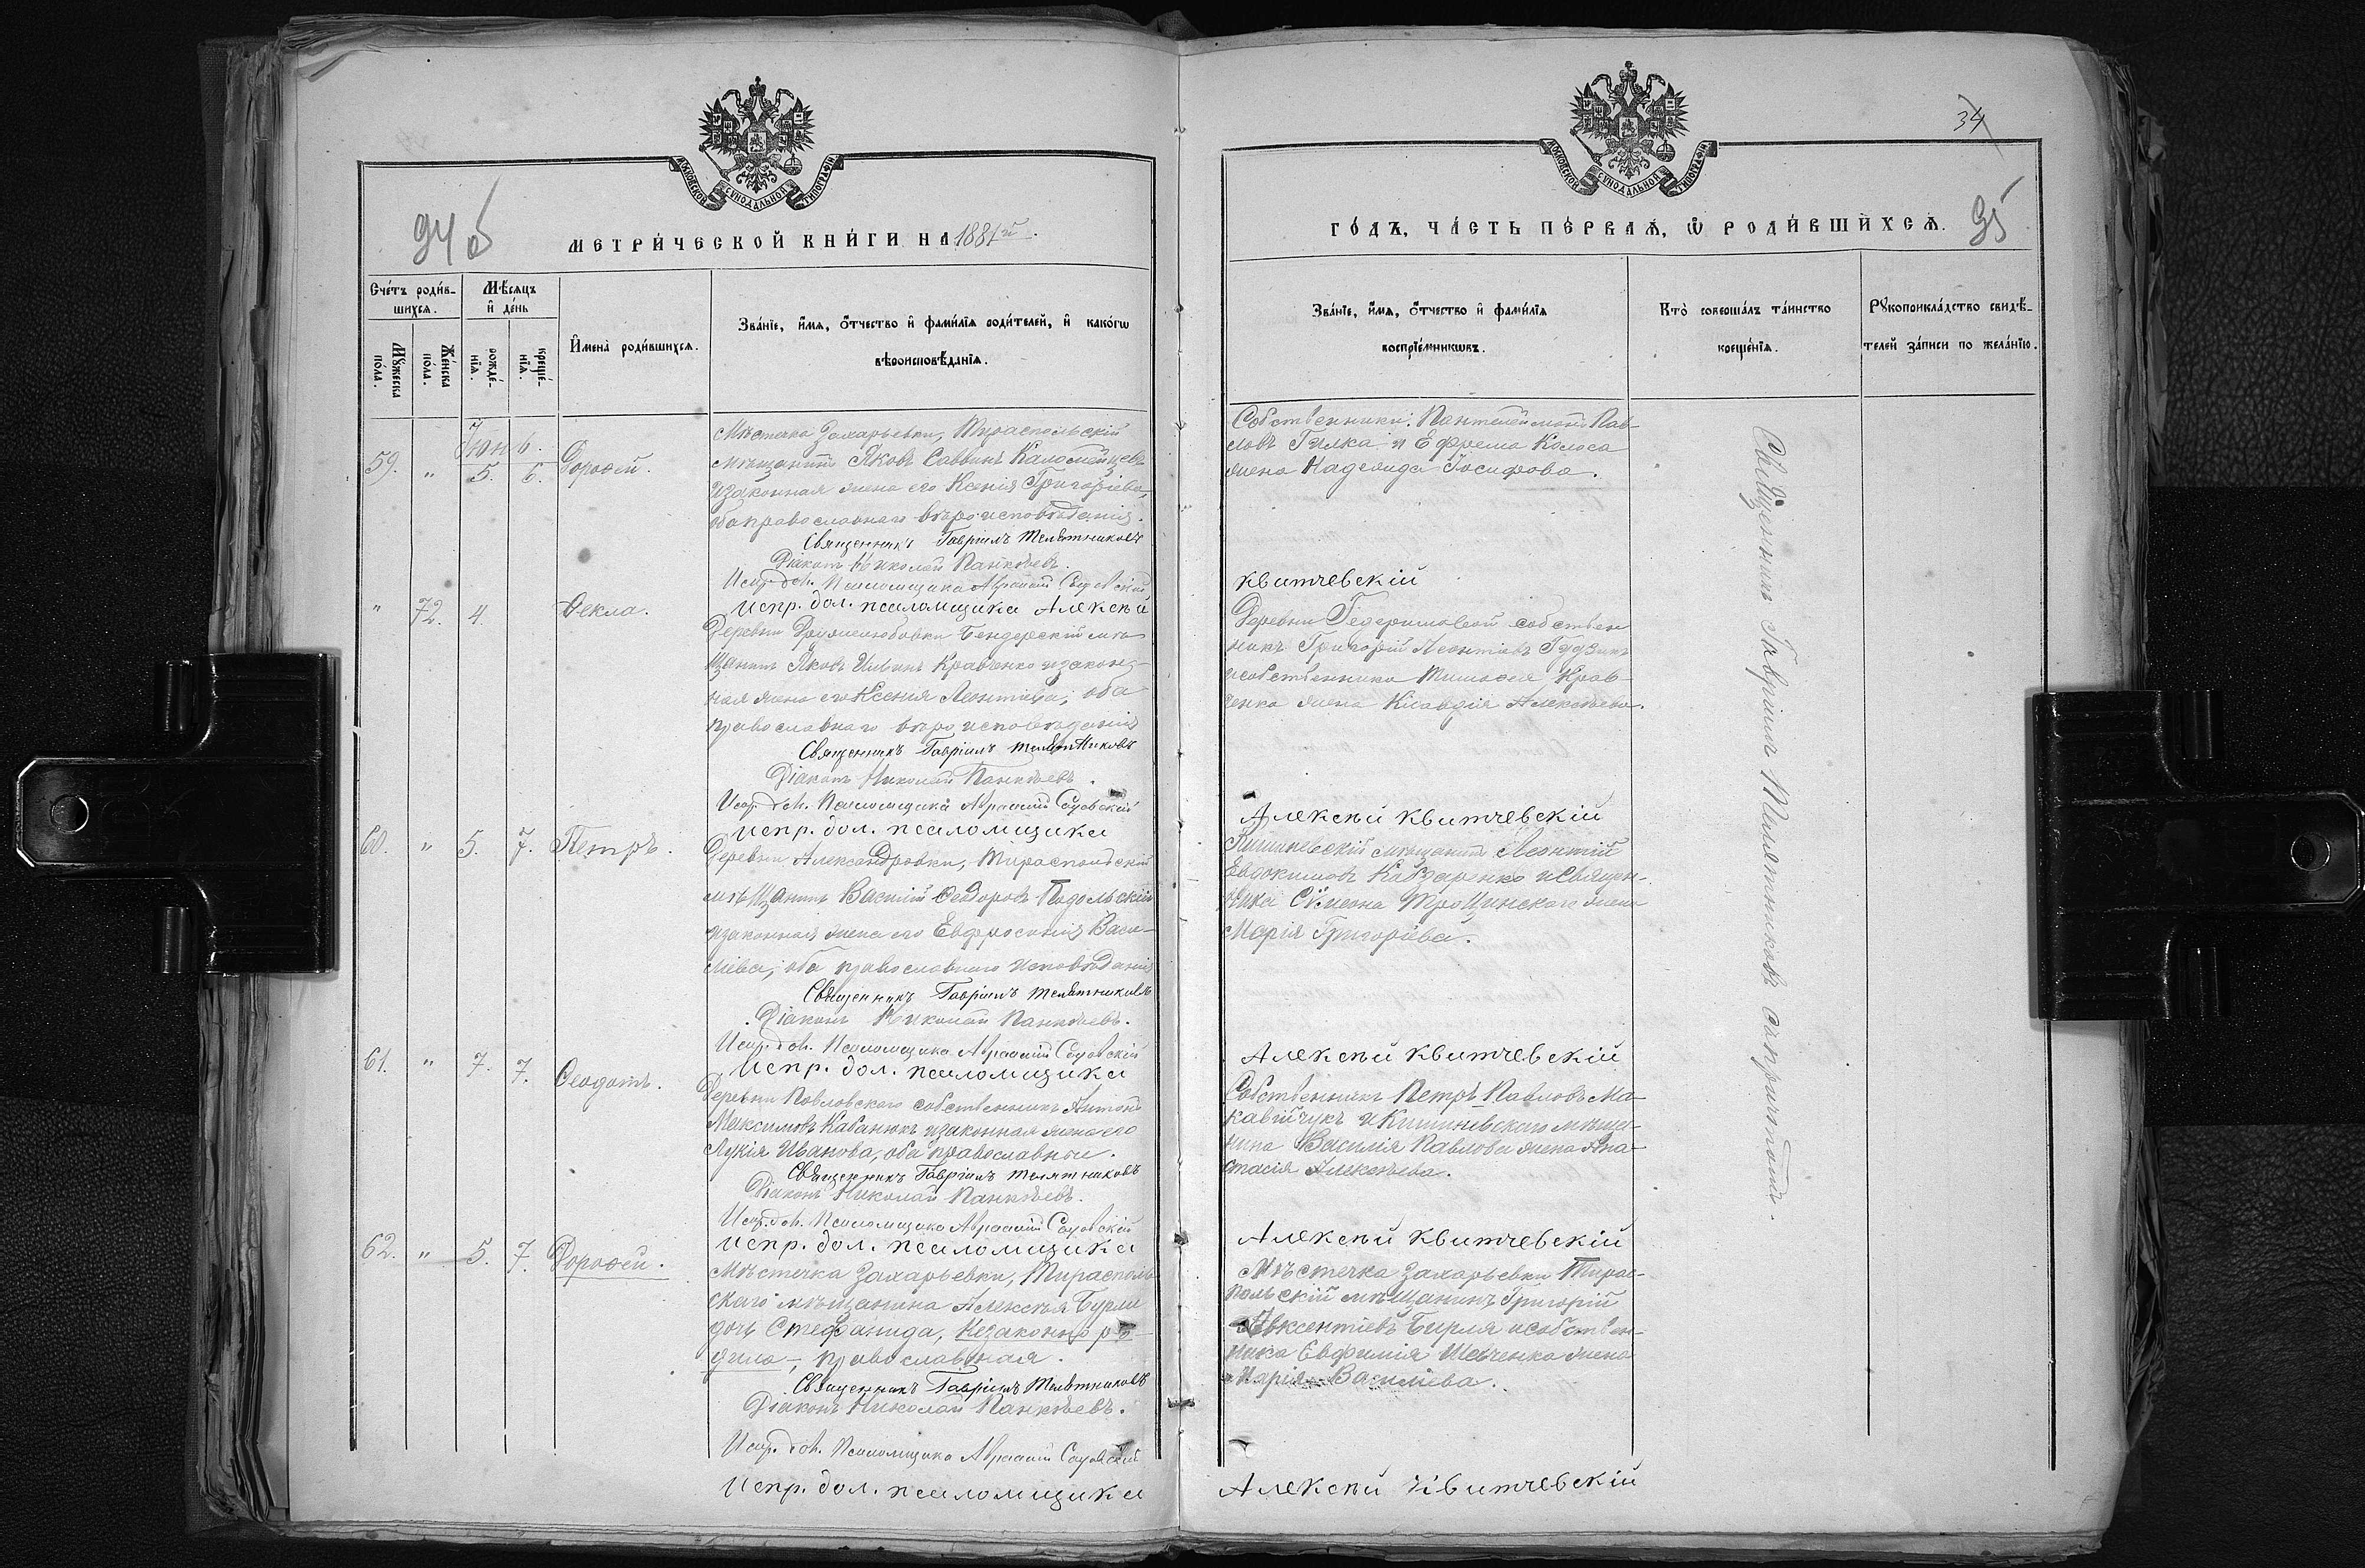 МОСКОВСКОЙ СѴНОДАЛЬНОЙ ТИПОГРАФІИ
94 об
МЕТРИ́ЧЕСКОЙ КНИ́ГИ НА 1881й.
Сче́тъ роди́в-
шихся.
Мѣ́сяцъ
и҆ де́нь
Мꙋ́жеска
по́ла.
Же́нска
по́ла.
рожде́-
нїѧ.
креще́-
нїѧ.
И҆мена̀ роди́вшихсѧ.
Зва́нїе, и҆́мѧ, ѻ҆́тчество и҆ фами́лїѧ роди́телей, и҆ како́гѡ
вѣроисповѣ́данїѧ.
Іюнь.
59. " 5. 6. Дорофей.
Мѣстечка Захарьевки, Тираспольскій
мѣщанинъ Яковъ Саввинъ Каломойцевъ
и законная жена его Ксенія Григоріева,
оба православнаго вѣроисповѣданія.
Священникъ Гавріилъ Телятниковъ
Діаконъ Николай Панкѣевъ.
Испр. дол. Псаломщика Авраамій
Испр. дол. псаломщика Алексѣй
" 72. 4. Ѳекла.
Деревни Дружелюбовки Бендерскій мѣ-
щанинъ Яковъ Ильинъ Кравченко и закон-
ная жена его Ксения Леонтіева, оба
православнаго вѣроисповѣданія
Священникъ Гавріилъ Телятниковъ
Діаконъ Николай Панкѣевъ.
Испр. дол. Псаломщика Авраамій
Испр. дол. псаломщика
60. " 5. 7. Петръ.
Деревни Александровки, Тираспольскій
мѣщанинъ Василій Ѳеодоровъ Подольскій
и законная жена его Евфросинія Васи-
ліева, оба православнаго исповѣданія
Священникъ Гавріилъ Телятниковъ
Діаконъ Николай Панкѣевъ.
Испр. дол. Псаломщика Авраамій
Испр. дол. псаломщика
61. " 7. 7. Ѳеодотъ.
Деревни Павловскаго собственникъ Антонъ
Максимовъ Кабанюкъ и законная жена его
Лукія Иванова, оба православные.
Священникъ Гавріилъ Телятниковъ
Діаконъ Николай Панкѣевъ.
Испр. дол. Псаломщика Авраамій
Испр. дол. псаломщика
62. " 5. 7. Дорофей.
Мѣстечка Захарьевки, Тирасполь-
скаго мѣщанина Алексѣя Бурли
дочь Стефанида, незаконно ро-
дила, православная.
Священникъ Гавріилъ Телятниковъ
Діаконъ Николай Панкѣевъ.
Испр. дол. Псаломщика Авраамій
Испр. дол. псаломщика
МОСКОВСКОЙ СѴНОДАЛЬНОЙ ТИПОГРАФІИ
34
95
ГО́ДЪ, ЧА́СТЬ ПЕ́РВАѦ, Ѡ҆ РОДИ́ВШИХСѦ.
Зва́нїе, и҆́мѧ, ѻ҆́тчество и҆ фами́лїѧ
воспрїе́мникѡвъ.
Кто̀ соверша́лъ та́инство
креще́нїѧ.
Рꙋкоприкла́дство свидѣ́-
телей за́писи по жела́нїю.
Собственники: Пантелеймонъ Пав-
ловъ Гилка и Ефрема Колоса
жена Надежда Іосифова.
Квитчевскій
Деревни Гедеримовой собствен
никъ Григорій Леонтіевъ
и собственника Тимофея Крав-
ченко жена Клавдія Алексѣева.
Алексѣй Квитчевскій
Кишиневскій мѣщанинъ Леонтій
Евдокимовъ и священ-
ника Сѵмеона Трощинскаго жена
Марія Григоріева.
Алексѣй Квитчевскій
Собственникъ Петръ Павловъ Ма-
кавійчукъ и Кишиневскаго мѣща-
нина Василія Павлова жена Ана-
стасія Алексѣева.
Алексѣй Квитчевскій
Мѣстечка Захарьевки Тирас-
польскій мѣщанинъ Григорій
Авксентіевъ Бурля и собствен-
ника Евфимія Шевченка жена
Марія Василіева.
Алексѣй Квитчевскій
Священникъ Гавріилъ Телятниковъ съ причтомъ.